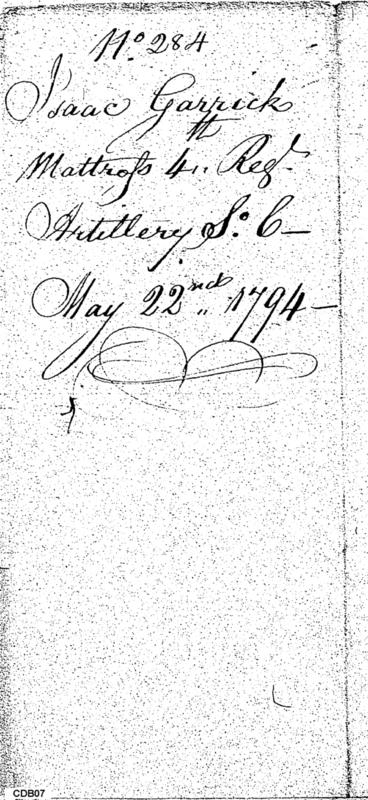 No. 284
Isaac Garrick
Mattross 4th Regt
Artillery So. C—
May 22nd 1794—
CDB07